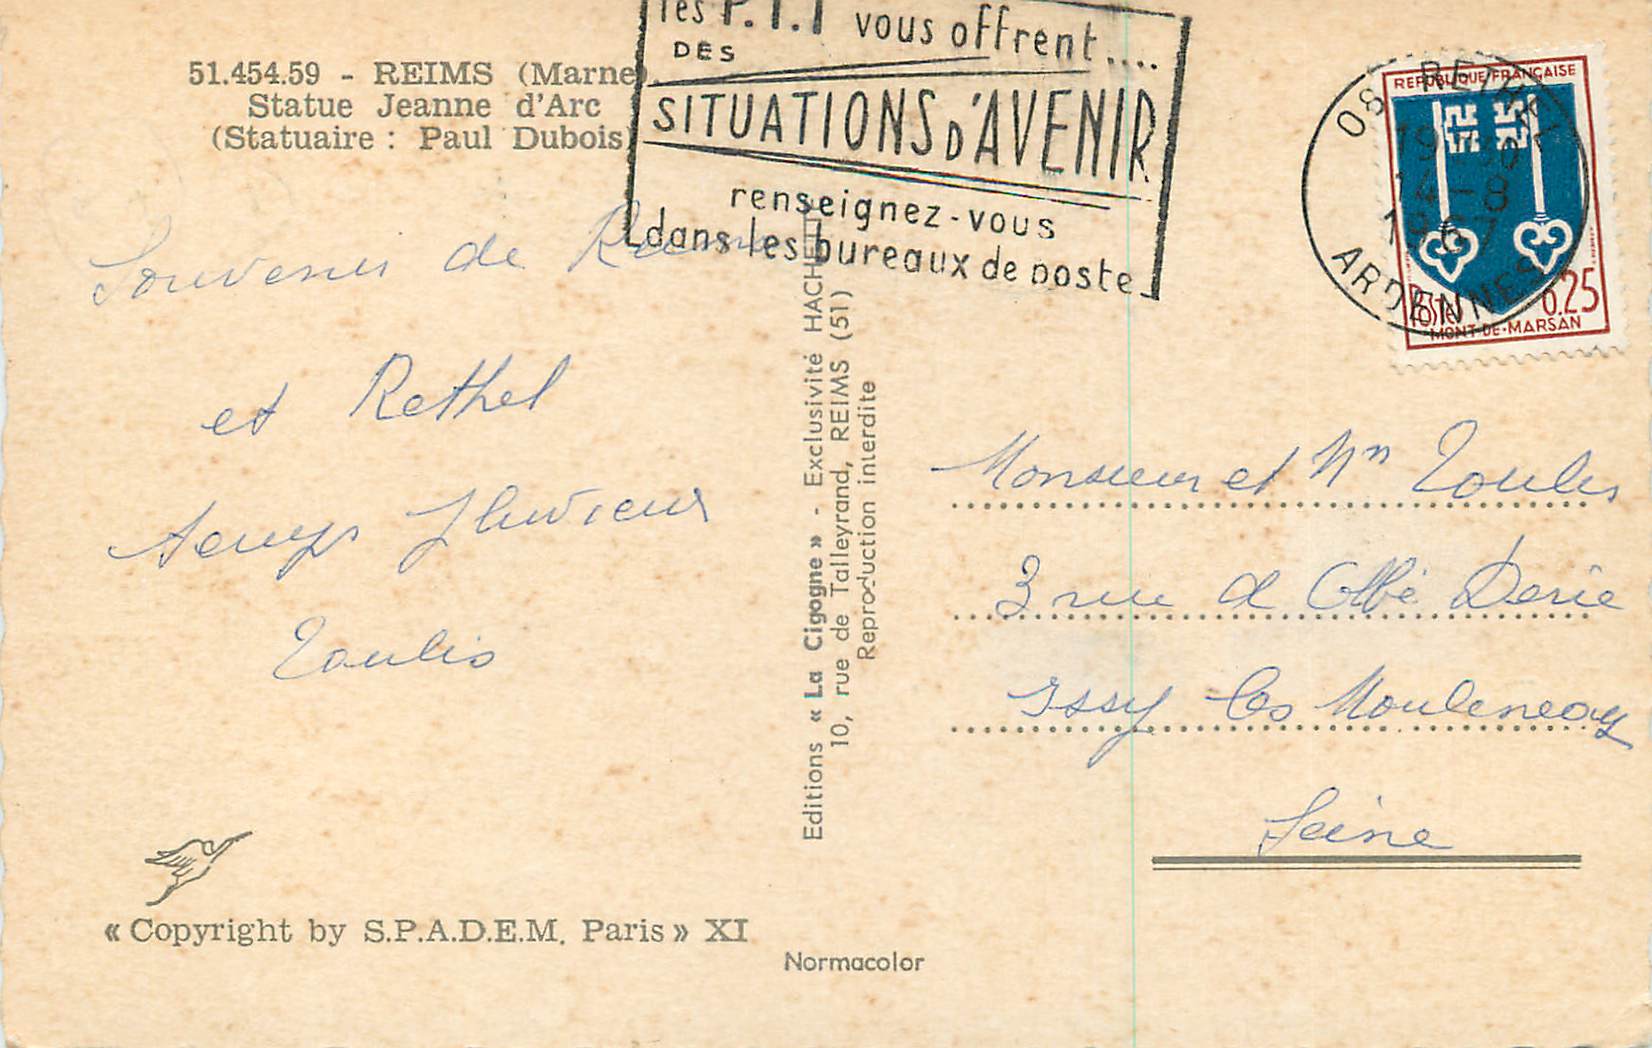 51.454.59 - REIMS (Marne).
Statue Jeanne d'Arc
(Statuaire : Paul Dubois)
les P.T.T vous offrent....
DES
SITUATIONS D'AVENIR
renseignez-vous
dans les bureaux de poste
08 RETHEL
14-8
ARDENNES
REPUBLIQUE FRANÇAISE
Postes 0,25
MONT-DE-MARSAN
Souvenir de Reims
et Rethel
temps pluvieux
Toulis
Editions « La Cigogne » - Exclusivité HACHETTE
10, rue de Talleyrand, REIMS (51)
Reproduction interdite
Monsieur et Mm Toulis
3 rue d
Issy les Mouleneay
Seine
« Copyright by S.P.A.D.E.M. Paris » XI
Normacolor